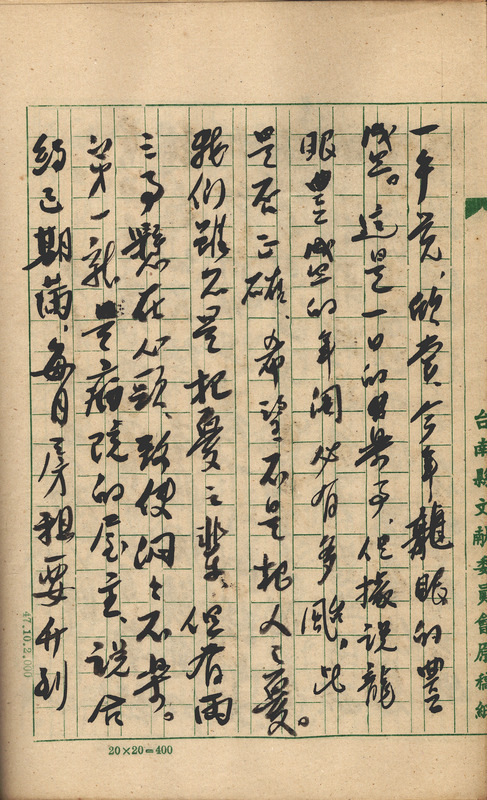 台南縣文獻委員會原稿紙
一午覺、欣賞今年龍眼的豐
盛。這是一日的樂事、但據說龍
眼豐盛的年間必有多颱、此
是否正確、希望不是杞人之憂。
我們雖不是杞憂之輩、但有兩
三事懸在心頭、致使悶々不樂。
第一就是病院的屋主、說合
約已期滿、每月房租要升到
47.10.2.000
20×20=400